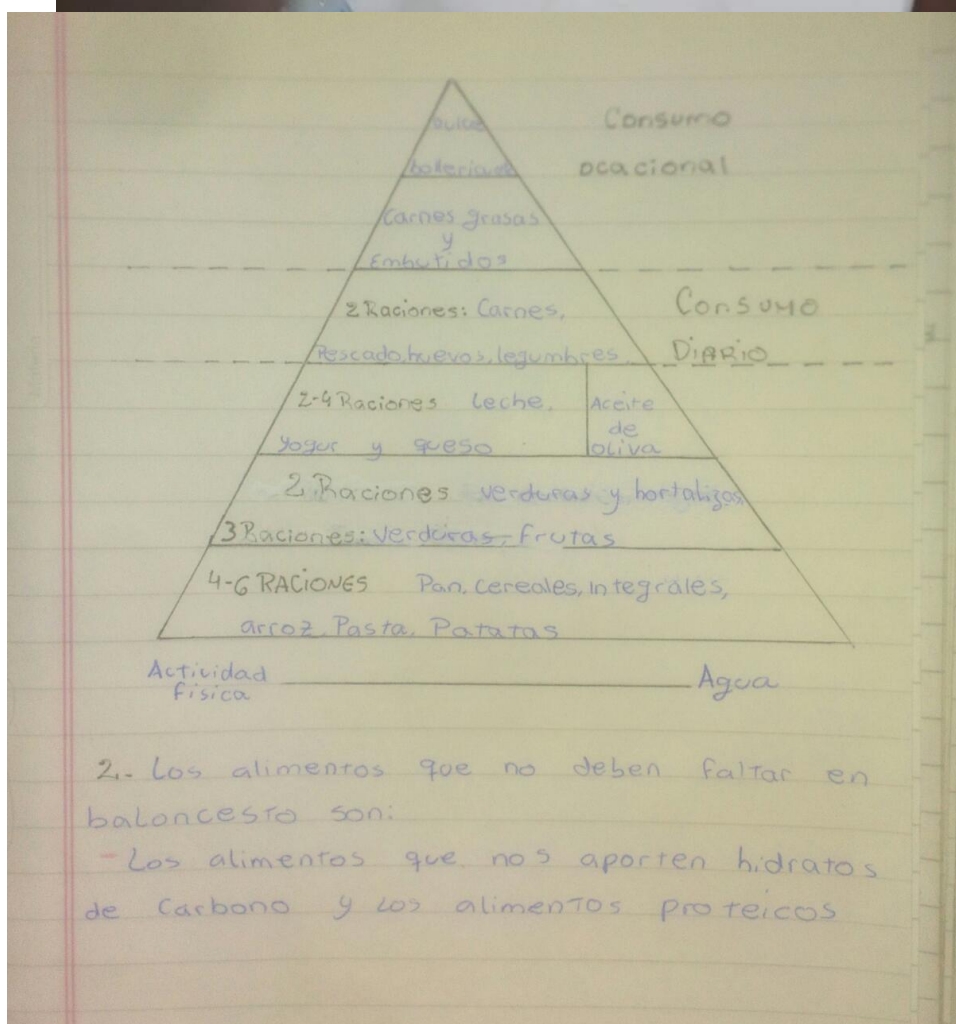 Dulce
Consumo
bolleria de
ocacional
Carnes grasas
y
Embutidos
2 Raciones: Carnes,
Consumo
Pescado, huevos, legumbres
DiARiO
2-4 Raciones Leche,
Aceite
de
yogur y queso
oliva
2 Raciones verduras y hortalizas
3 Raciones: verduras, Frutas
4-6 RACiONES Pan, cereales, integrales,
arroz, Pasta, Patatas
Actividad
Física
Agua
2.- Los alimentos que no deben faltar en
baloncesto son:
- Los alimentos que nos aporten hidratos
de Carbono y los alimentos proteicos